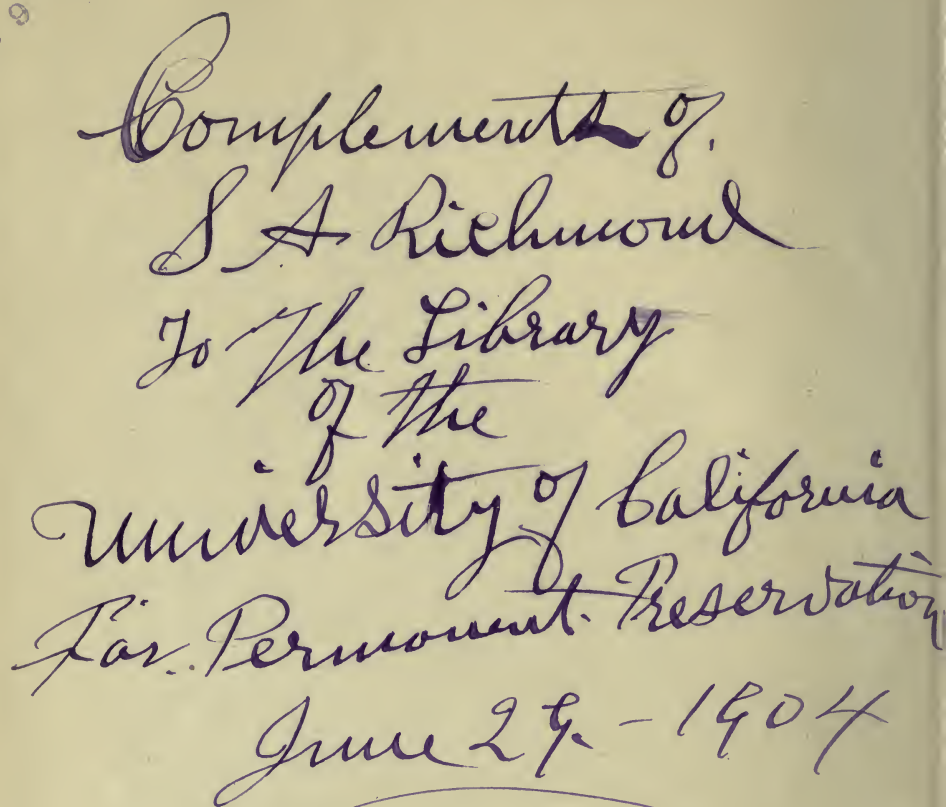 Complements of.
S A Richmond
To The Library
of the
University of California
For. Permonent. Preservation
June 29. - 1904